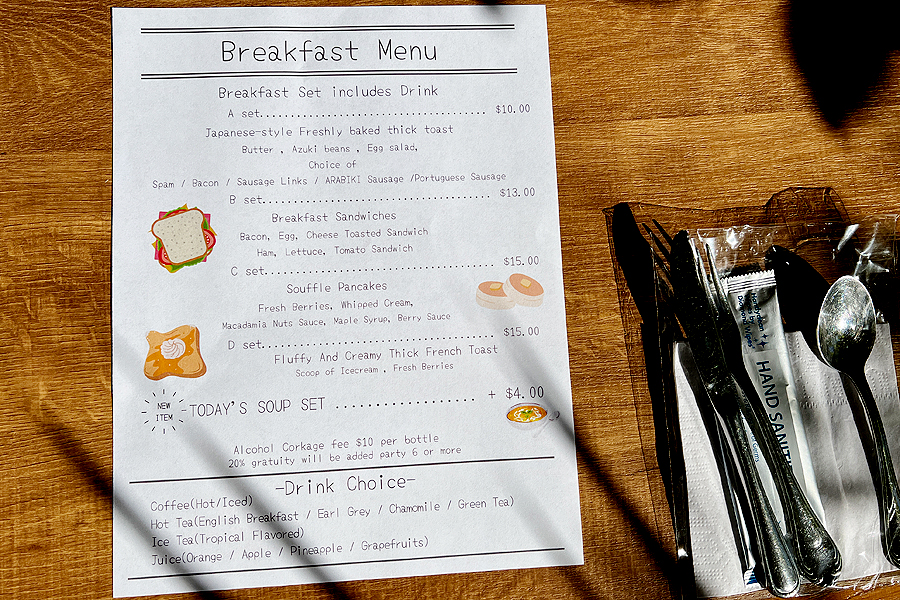 Breakfast Menu
Breakfast Set includes Drink
A set........................................ $10.00
Japanese-style Freshly baked thick toast
Butter , Azuki beans , Egg salad,
Choice of
Spam / Bacon / Sausage Links / ARABIKI Sausage /Portuguese Sausage
B set........................................ $13.00
Breakfast Sandwiches
Bacon, Egg, Cheese Toasted Sandwich
Ham, Lettuce, Tomato Sandwich
C set........................................ $15.00
Souffle Pancakes
Fresh Berries, Whipped Cream,
Macadamia Nuts Sauce, Maple Syrup, Berry Sauce
D set........................................ $15.00
Fluffy And Creamy Thick French Toast
Scoop of Icecream , Fresh Berries
NEW ITEM
-TODAY'S SOUP SET .................. + $4.00
Alcohol Corkage fee $10 per bottle
20% gratuity will be added party 6 or more
-Drink Choice-
Coffee(Hot/Iced)
Hot Tea(English Breakfast / Earl Grey / Chamomile / Green Tea)
Ice Tea(Tropical Flavored)
Juice(Orange / Apple / Pineapple / Grapefruits)
HAND